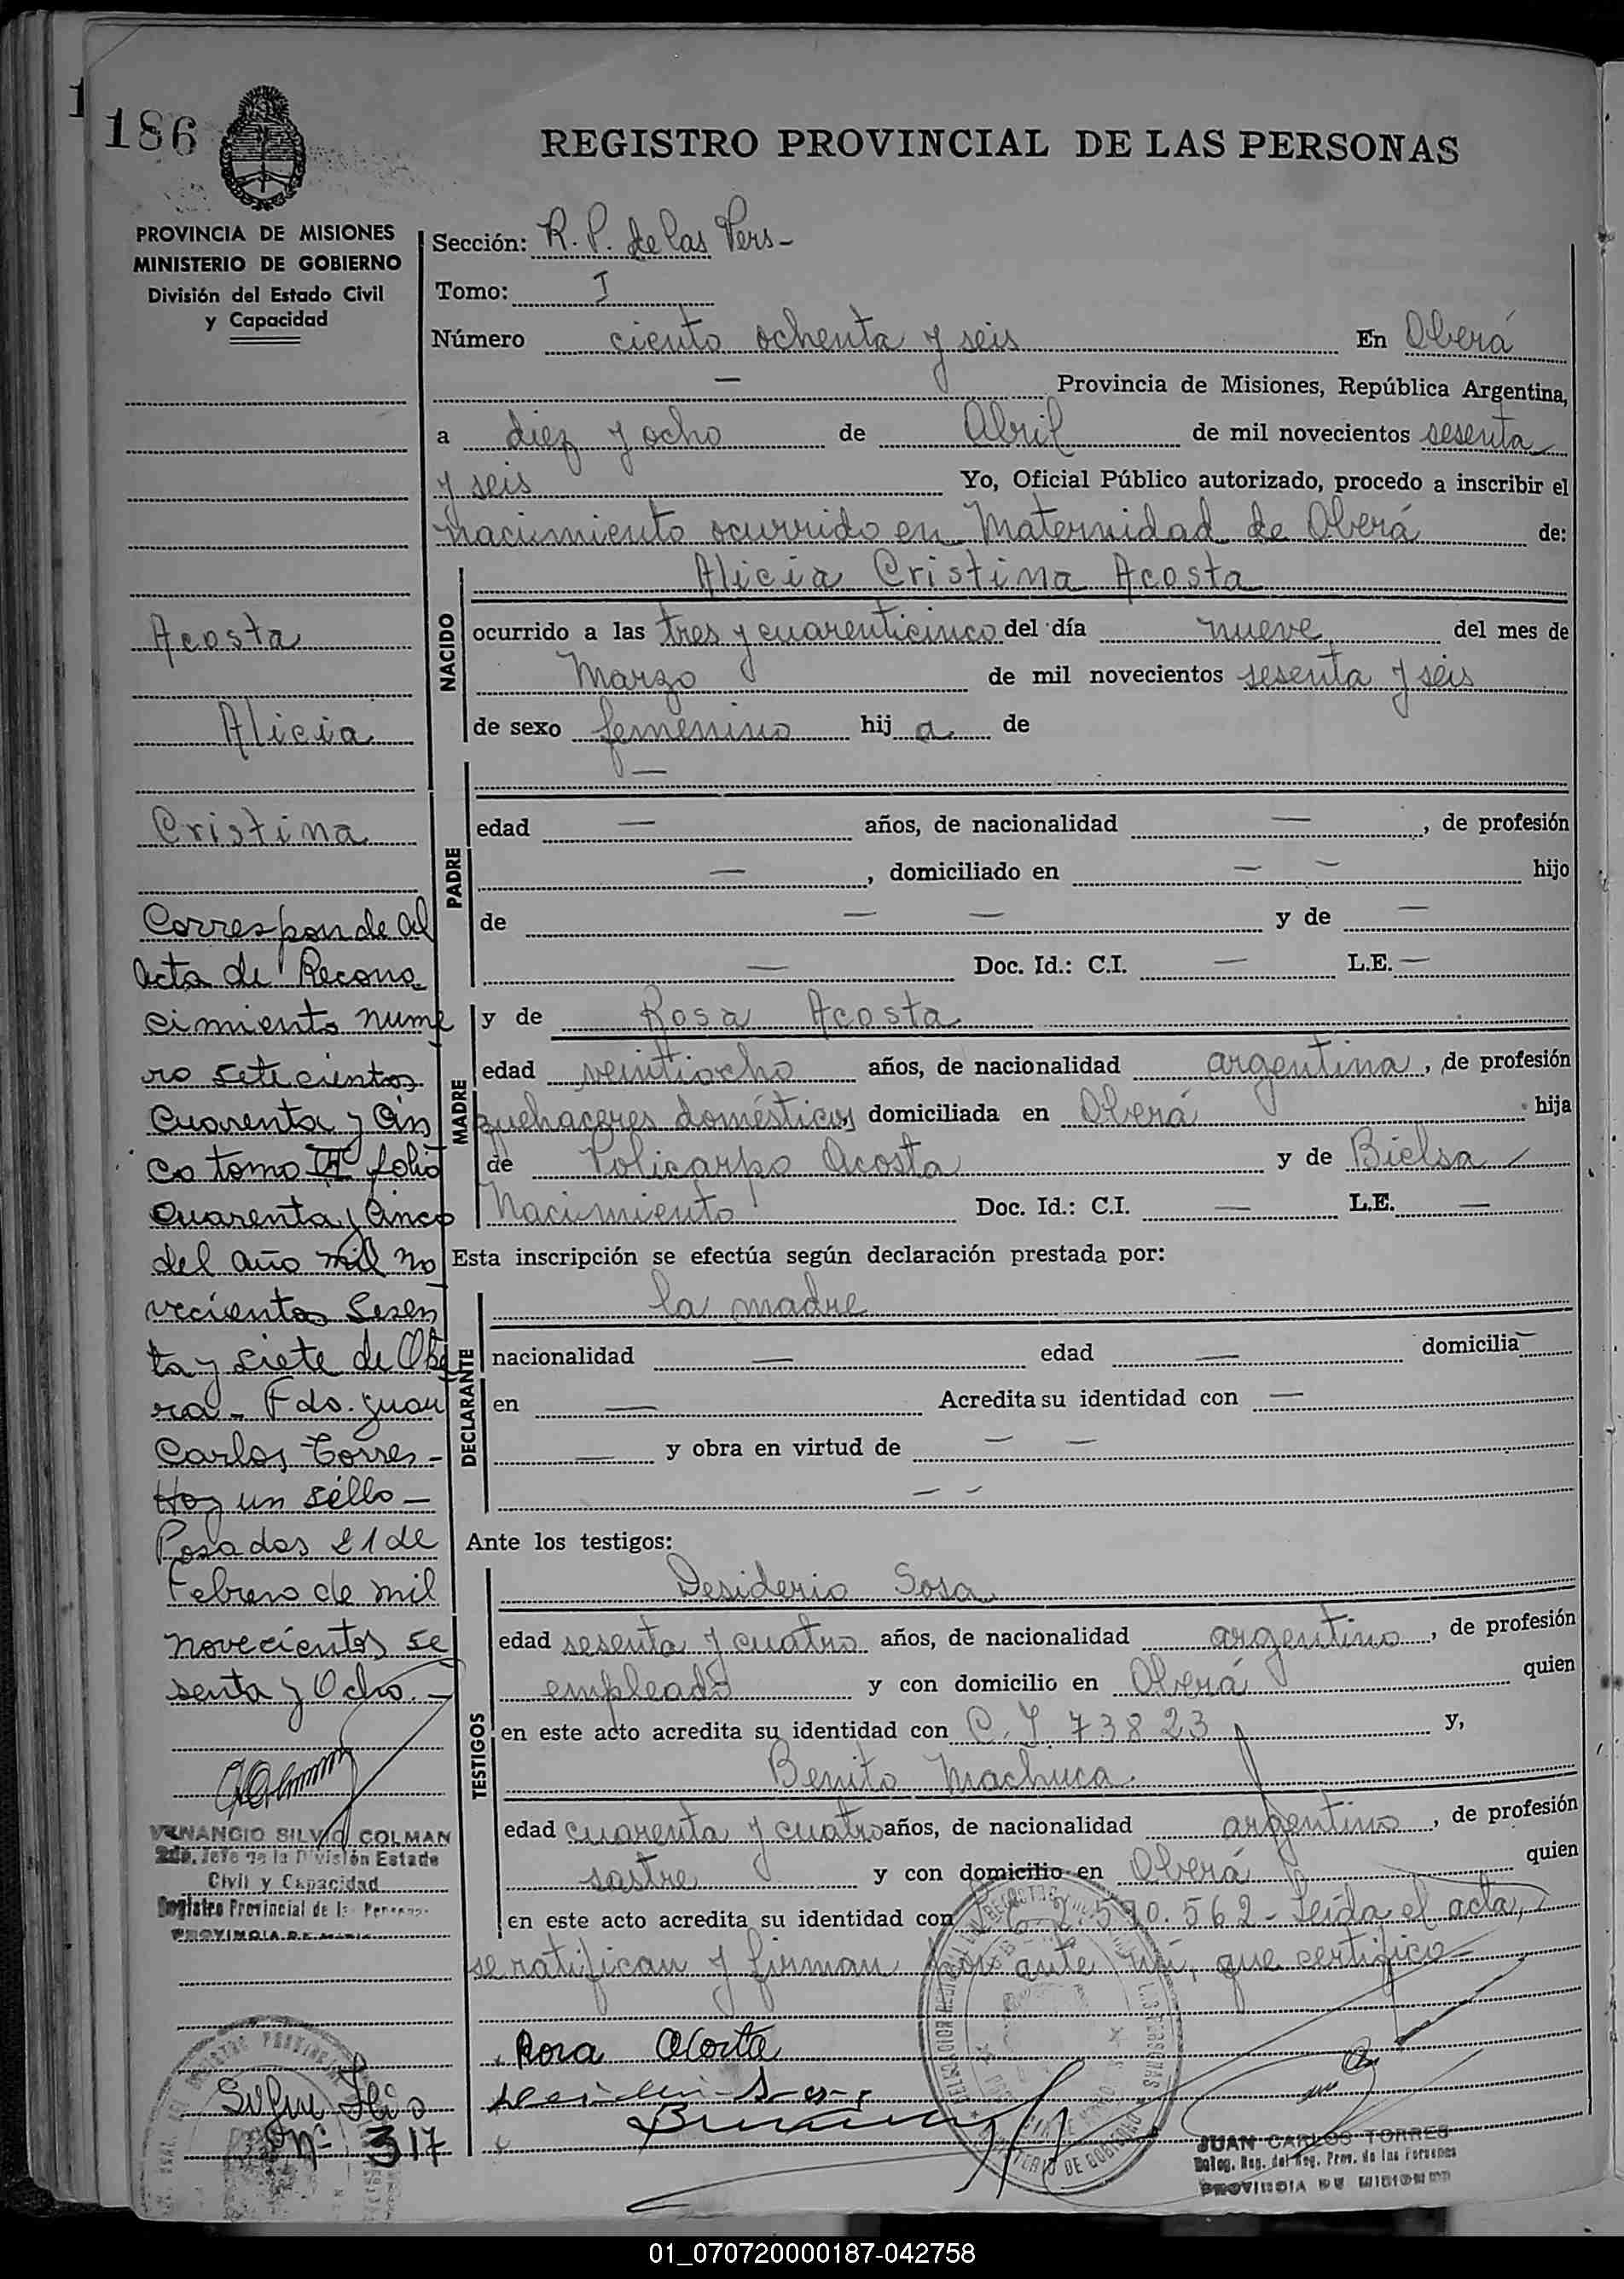 186
REGISTRO PROVINCIAL DE LAS PERSONAS
PROVINCIA DE MISIONES
MINISTERIO DE GOBIERNO
División del Estado Civil
y Capacidad
Sección: R. P. de las Pers-
Tomo: I
Número ciento ochenta y seis En Oberá
— Provincia de Misiones, República Argentina,
a diez y ocho de Abril de mil novecientos sesenta
y seis Yo, Oficial Público autorizado, procedo a inscribir el
nacimiento ocurrido en Maternidad de Oberá de:
NACIDO
Alicia Cristina Acosta
ocurrido a las tres y cuarenticinco del día nueve del mes de
Marzo de mil novecientos sesenta y seis
de sexo femenino hij a de
PADRE
—
edad — años, de nacionalidad —, de profesión
—, domiciliado en — — hijo
de — — y de —
— Doc. Id.: C.I. — L.E. —
MADRE
y de Rosa Acosta
edad veintiocho años, de nacionalidad argentina, de profesión
quehaceres domésticos, domiciliada en Oberá hija
de Policarpo Acosta y de Bielsa
Nacimiento Doc. Id.: C.I. — L.E. —
Esta inscripción se efectúa según declaración prestada por:
DECLARANTE
la madre
nacionalidad — edad — domicilia—
en — Acredita su identidad con —
— y obra en virtud de — —
— —
Ante los testigos:
TESTIGOS
Desiderio Sosa
edad sesenta y cuatro años, de nacionalidad argentino, de profesión
empleado y con domicilio en Oberá quien
en este acto acredita su identidad con C. I. 73823 y,
Benito Machuca
edad cuarenta y cuatro años, de nacionalidad argentino, de profesión
sastre y con domicilio en Oberá quien
en este acto acredita su identidad con 2.590.562- Leída el acta,
se ratifican y firman por ante mí, que certifico-
Rosa Acosta
JUAN CARLOS TORRES
Deleg. Reg. del Reg. Prov. de las Personas
PROVINCIA DE MISIONES
Acosta
Alicia
Cristina
Corresponde al
Acta de Recono
cimiento nume
ro setecientos
Cuarenta y Cin
co tomo III folio
Cuarenta y Cinco
del año mil no
vecientos sesen
ta y siete de Obe
ra - Fdo. Juan
Carlos Torres-
Hay un sello-
Posadas 21 de
Febrero de mil
novecientos se
senta y Ocho.-
VENANCIO SILVIO COLMAN
2do. Jefe de la División Estado
Civil y Capacidad
Registro Provincial de las Personas
PROVINCIA DE MISIONES
Nº 317
01_070720000187-042758